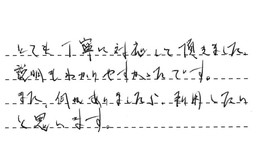 とても丁寧に対応して頂きました。
説明もわかりやすかったです。
また、何かありましたら、利用したい
と思います。